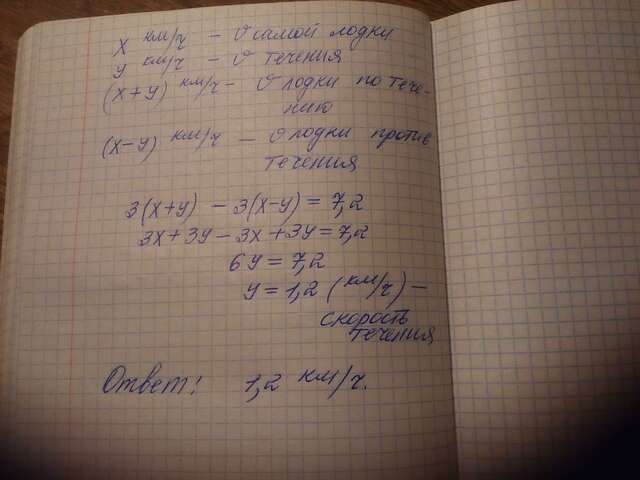 х км/ч – v самой лодки
у км/ч – v течения
(х+у) км/ч – v лодки по тече-
нию
(х-у) км/ч – v лодки против
течения
3(х+у) – 3(х-у) = 7,2
3х+3у-3х+3у=7,2
6у=7,2
у=1,2 (км/ч) –
скорость
течения
Ответ: 1,2 км/ч.